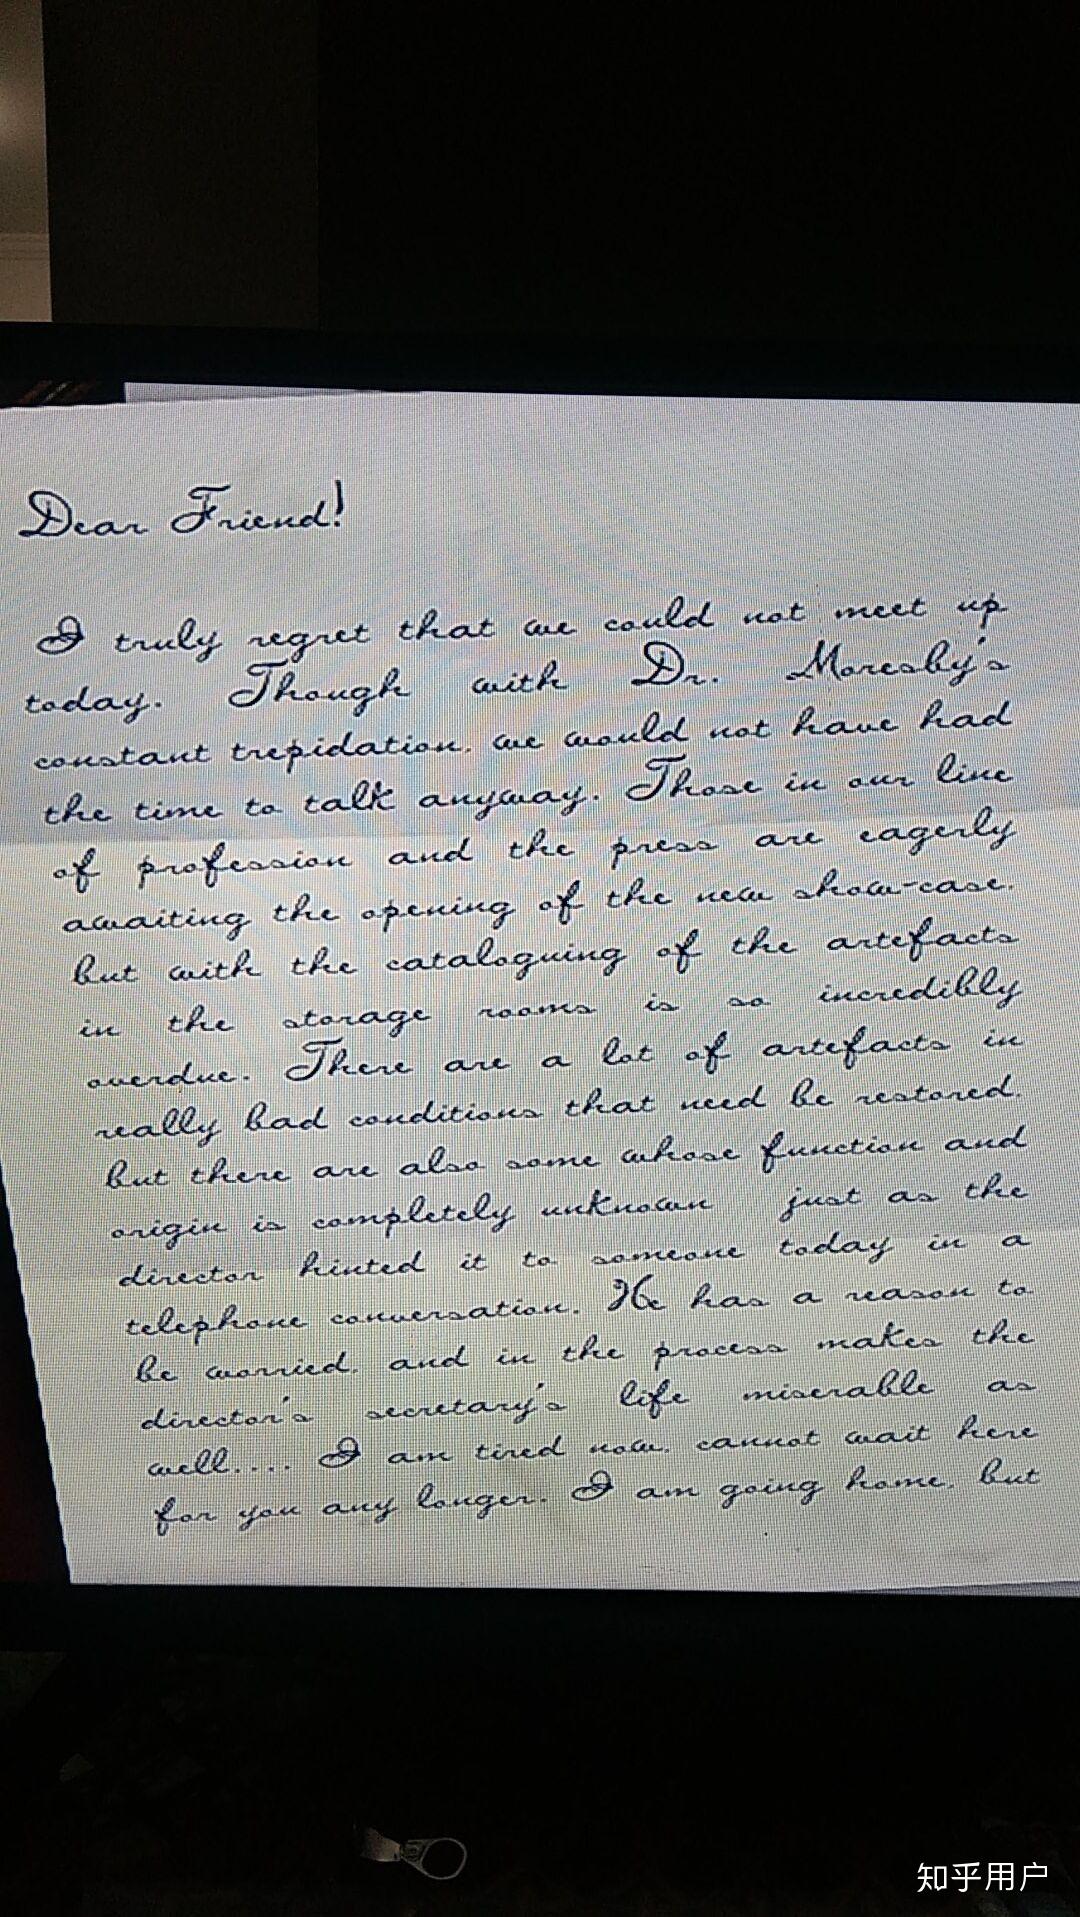 Dear Friend!
I truly regret that we could not meet up
today. Though with Dr. Moresby's
constant trepidation, we would not have had
the time to talk anyway. Those in our line
of profession and the press are eagerly
awaiting the opening of the new show-case,
but with the cataloguing of the artefacts
in the storage rooms is so incredibly
overdue. There are a lot of artefacts in
really bad conditions that need be restored,
but there are also some whose function and
origin is completely unknown just as the
director hinted it to someone today in a
telephone conversation. He has a reason to
be worried, and in the process makes the
director's secretary's life miserable as
well.... I am tired now, cannot wait here
for you any longer. I am going home, but
知乎用户